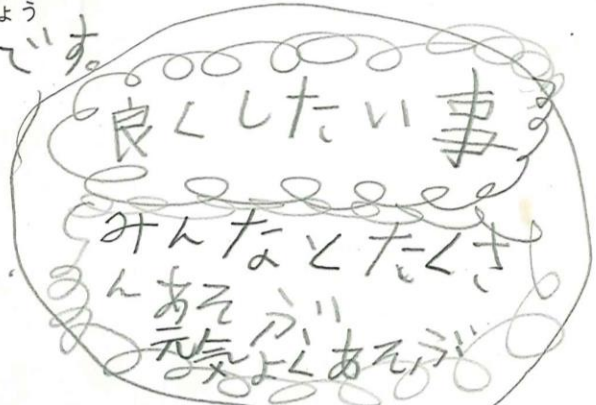 ょう
です。
良くしたい事
みんなとたくさ
んあそぶ!!
元気よくあそぶ